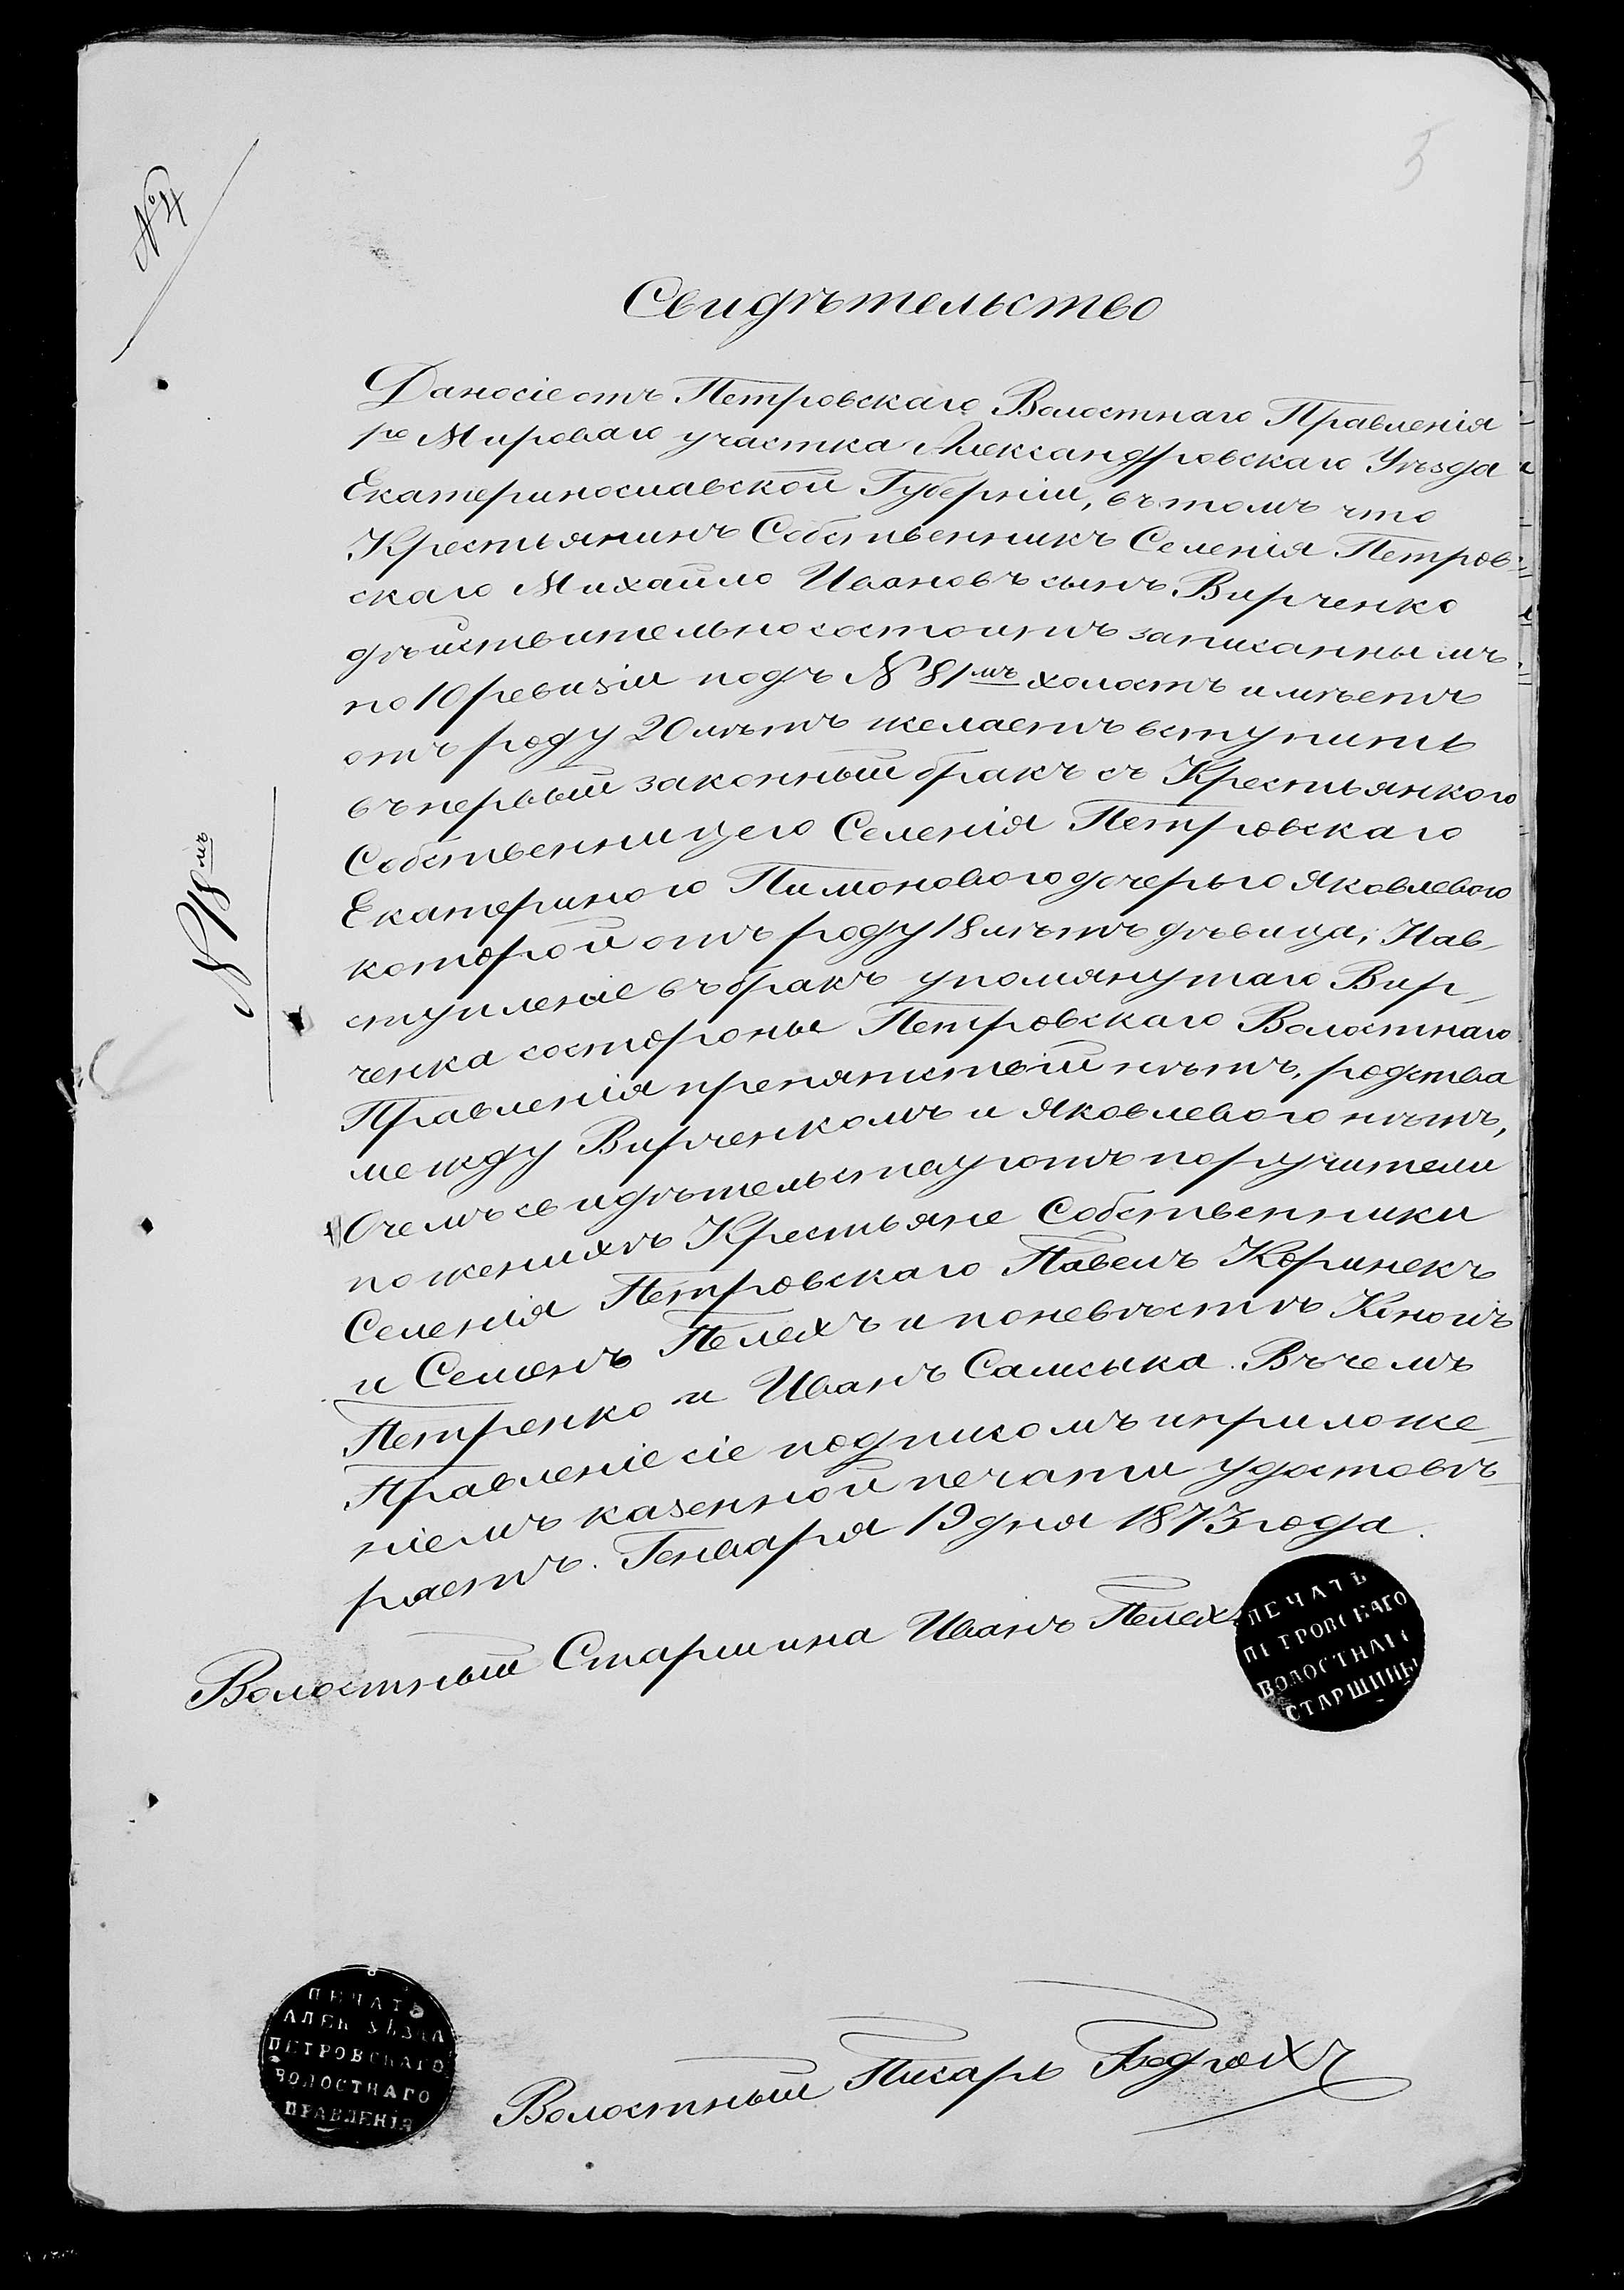 5
№ 4
Свидѣтельство
Дано сіе отъ Петровскаго Волостнаго Правленія
1го Мироваго участка Александровскаго Уѣзда
Екатеринославской Губерніи, въ томъ что
Крестьянинъ Собственникъ Селенія Петров-
скаго Михайло Ивановъ сынъ Вирченко
дѣйствительно состоитъ записаннымъ
по 10 ревизіи подъ № 81мъ холостъ имѣетъ
отъ роду 20 лѣтъ желаетъ вступить
въ первый законный бракъ съ Крестьянкою
Собственницею Селенія Петровскаго
Екатериною Пимоновою дочерью Яковлевою
которой отъ роду 18 лѣтъ дѣвица, На в-
ступленіе въ бракъ упомянутаго Вир-
ченка со стороны Петровскаго Волостнаго
Правленія препятствій нѣтъ, родства
между Вирченкомъ и Яковлевою нѣтъ,
О чемъ свидѣтельствуютъ поручители
по женихѣ Крестьяне Собственники
Селенія Петровскаго Павелъ Коринекъ
и Семенъ Пелехъ и по невѣстѣ
Петренко и Иванъ Самсыка. Въ чемъ
Правленіе сіе подписомъ и приложе-
ніемъ казенной печати удостовѣ-
ряетъ. Генваря 19 дня 1873 года.
Волостный Старшина Иванъ Пелехъ
ПЕЧАТЬ
ПЕТРОВСКАГО
ВОЛОСТНАГО
СТАРШИНЫ
№ 18мъ
ПЕЧАТЬ
АЛЕК УѢЗДА
ПЕТРОВСКАГО
ВОЛОСТНАГО
ПРАВЛЕНІЯ
Волостный Писарь